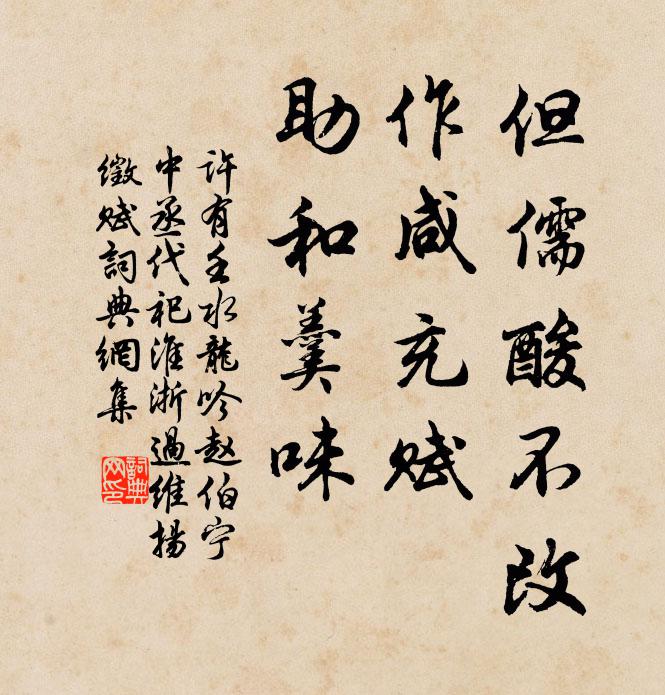 但儒酸不改
作咸充赋
助和羹味
许有壬水龍吟赵伯宁
中丞代祀淮浙過维揚
徵赋詞典網集
詞典网印